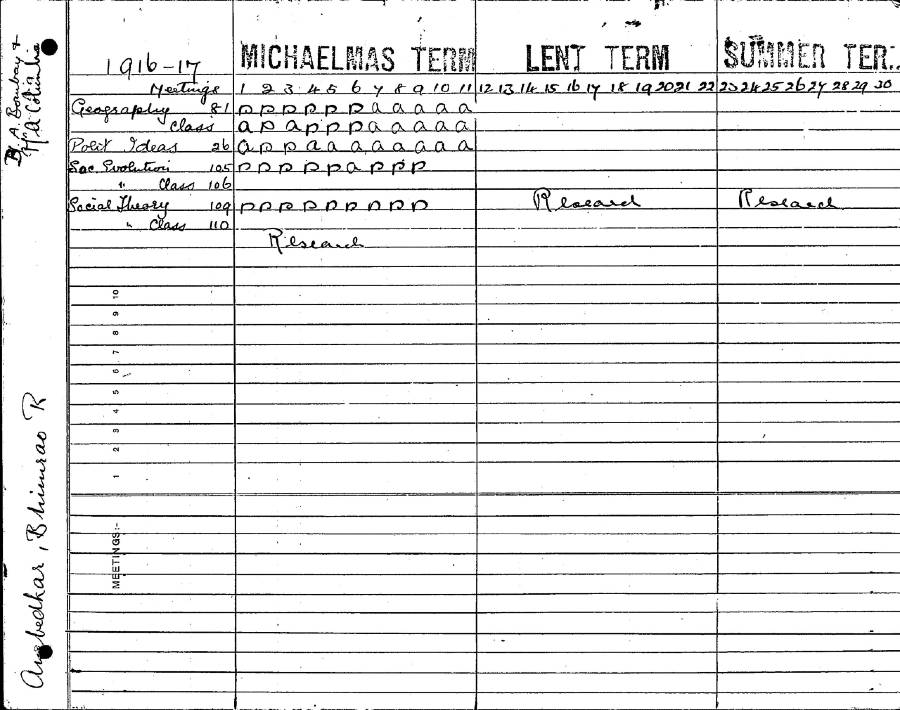 B.A. Bombay &
M.A. Columbia
Ambedkar, Bhimrao R
1916-17 MICHAELMAS TERM LENT TERM SUMMER TER
Meetings 1 2 3 4 5 6 7 8 9 10 11 12 13 14 15 16 17 18 19 20 21 22 23 24 25 26 27 28 29 30
Geography 81 p p p p p p a a a a a
Class a p a p p p a a a a a
Polit Ideas 26 a p p a a a a a a a a
Soc. Evolution 105 p p p p p a p p p
" Class 106
Social Theory 109 p p p p p p p p p Research Research
" Class 110
Research
MEETINGS:- 1 2 3 4 5 6 7 8 9 10